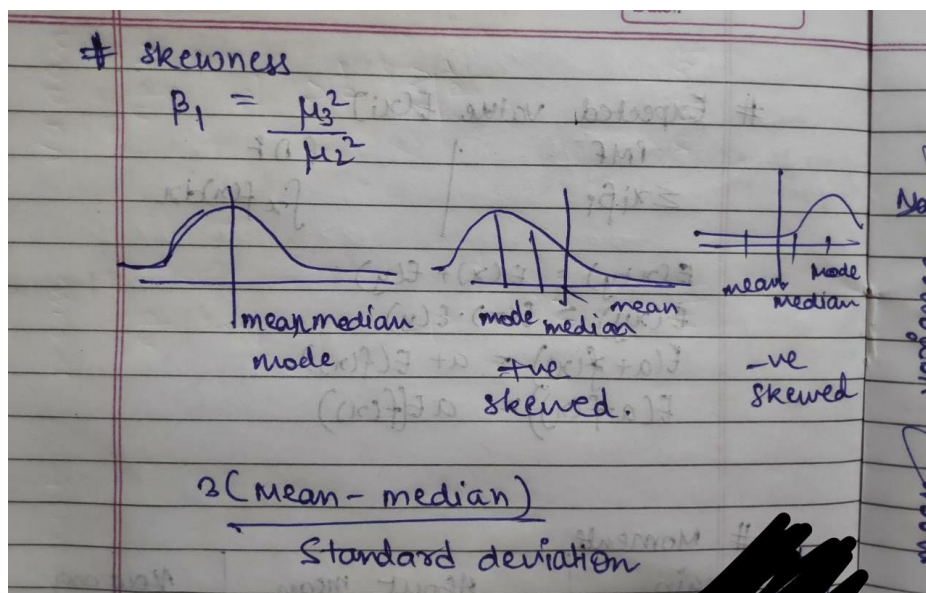 # skewness
β1 = μ3²
μ2²
mean, median
mode
mode median mean
+ve
skewed.
mean median mode
-ve
skewed
3(Mean - median)
Standard deviation
# Moments